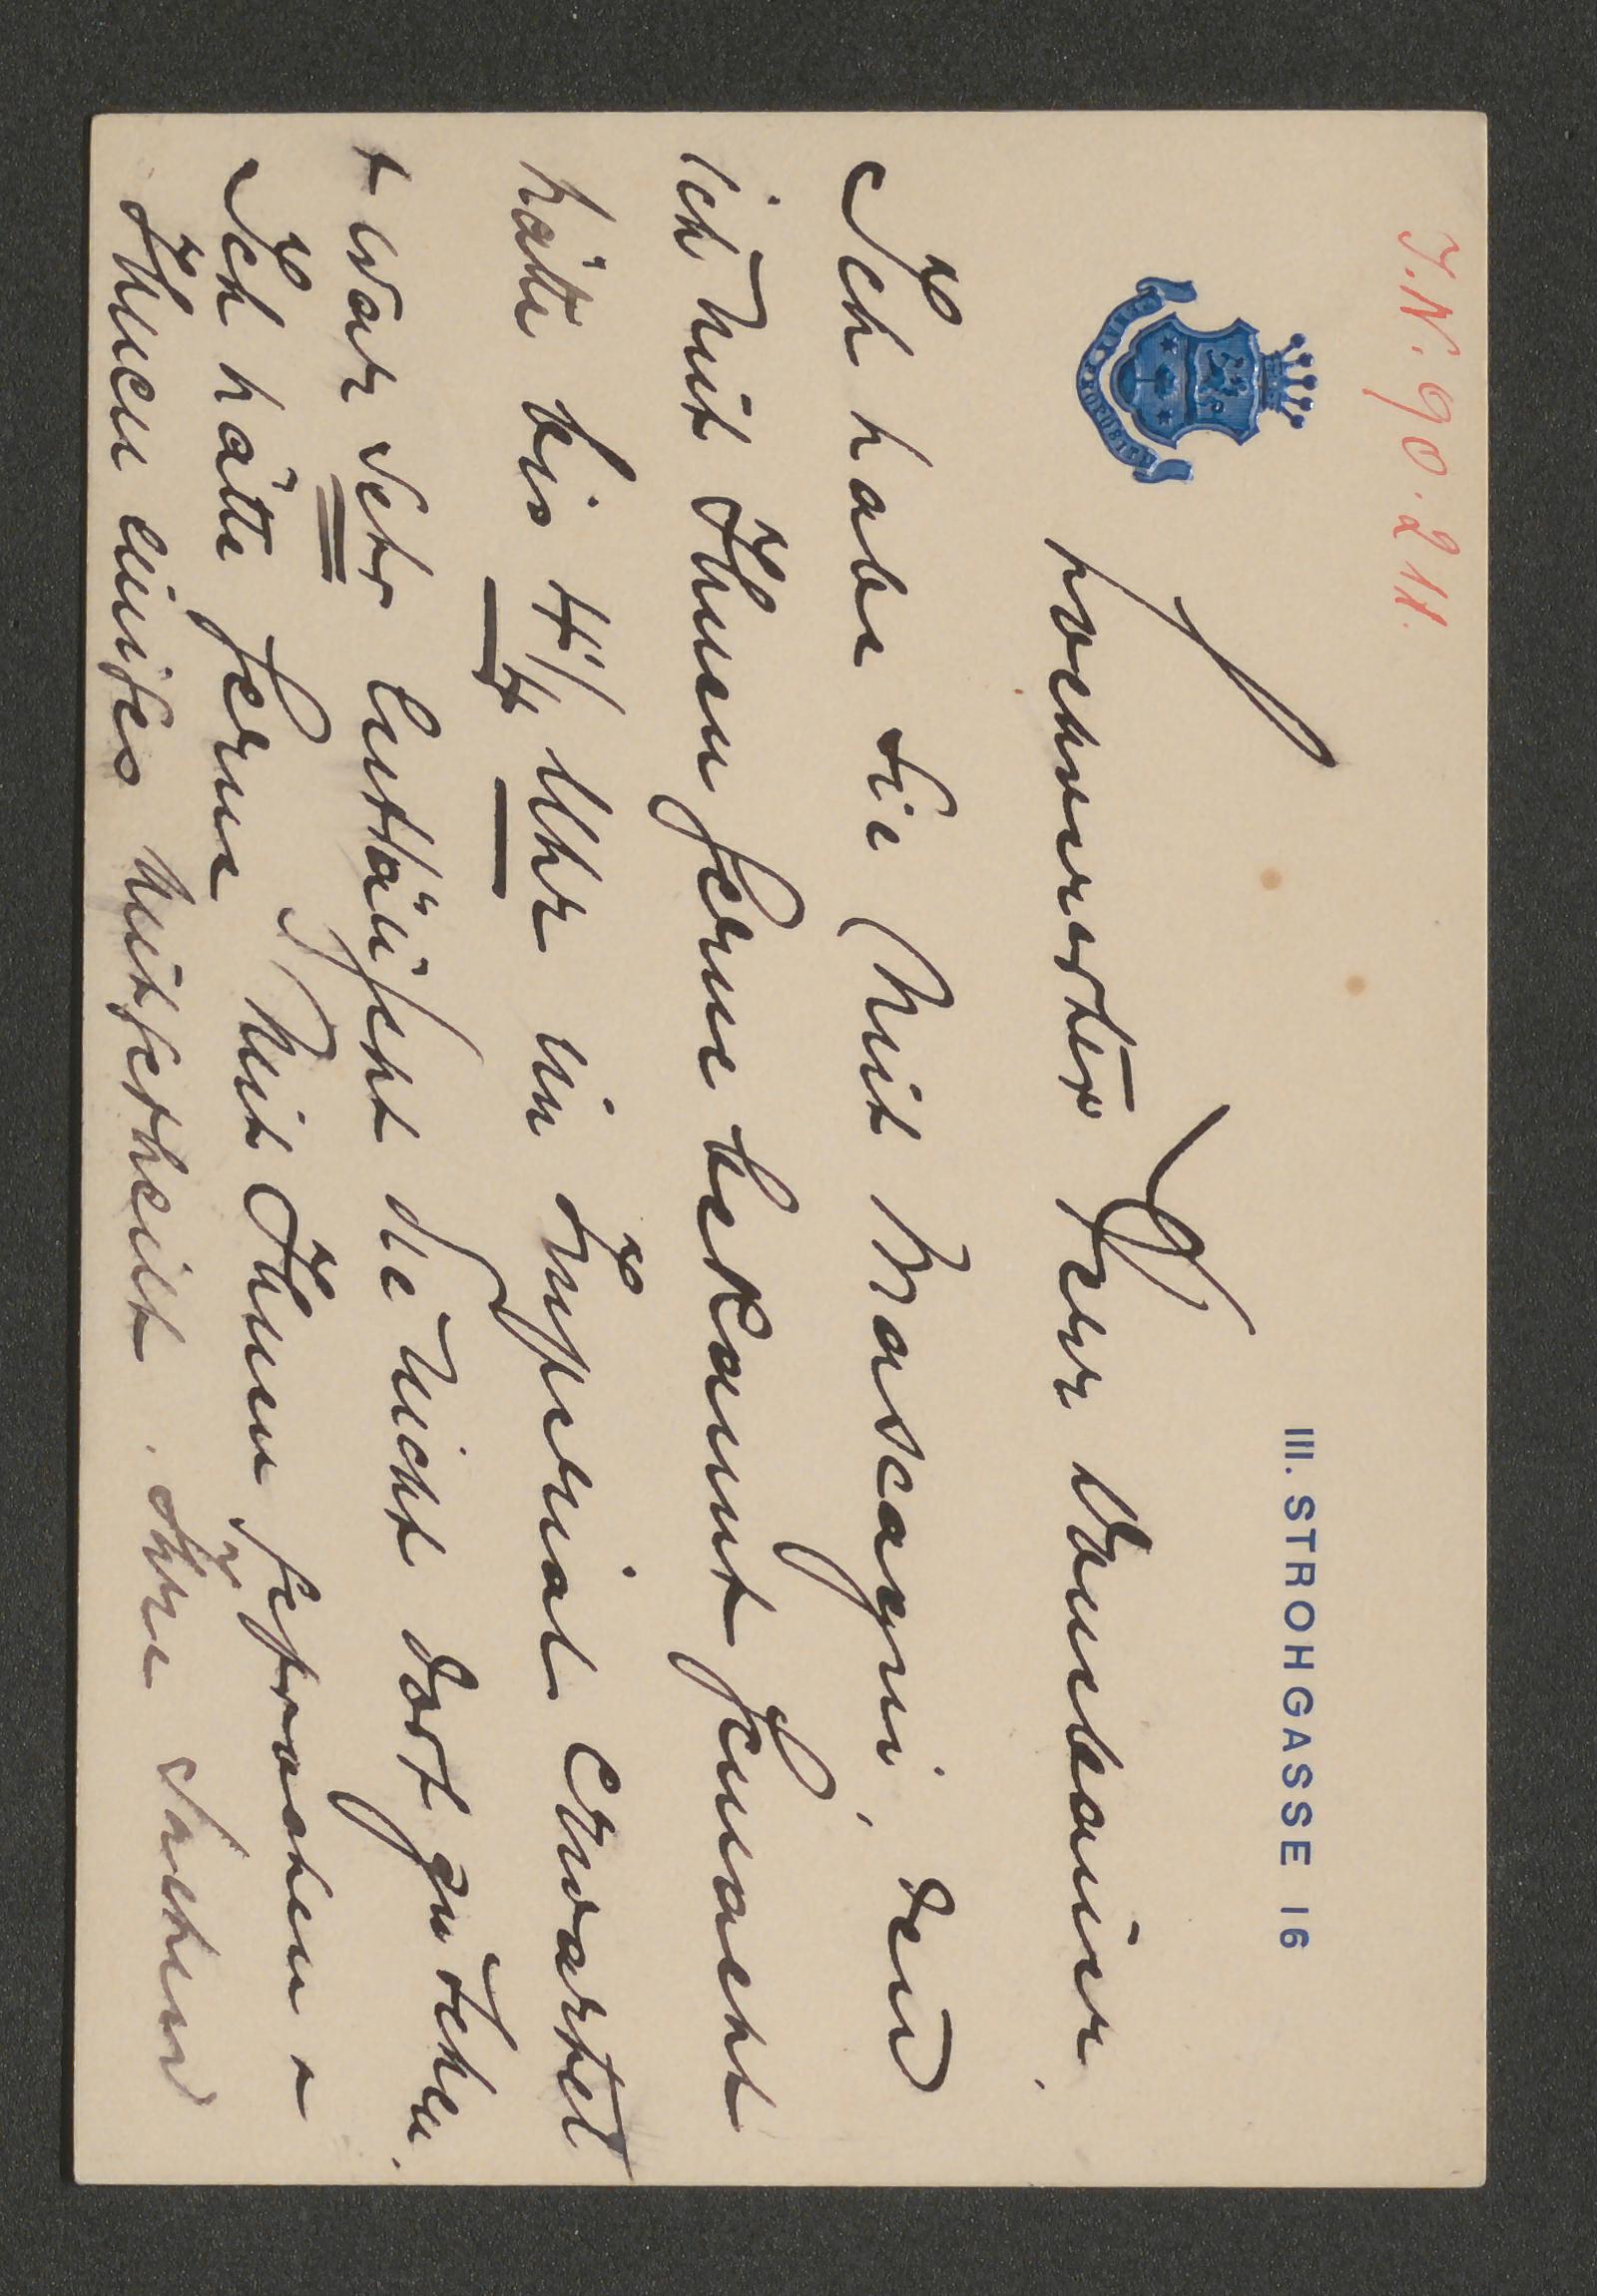 I.N. 90.211.
III. STROHGASSE 16
hochverehrter Herr Baumbauer.
Ich habe Sie mit Mascagni, den
ich mit Ihnen gerne bekannt gemacht
hätte bis 4 1/4 Uhr im Imperial erwartet
+ war sehr enttäuscht Sie nicht dort zu sehen.
Ich hätte gerne mit Ihnen gesprochen +
Ihnen einiges mitgetheilt. Ihre